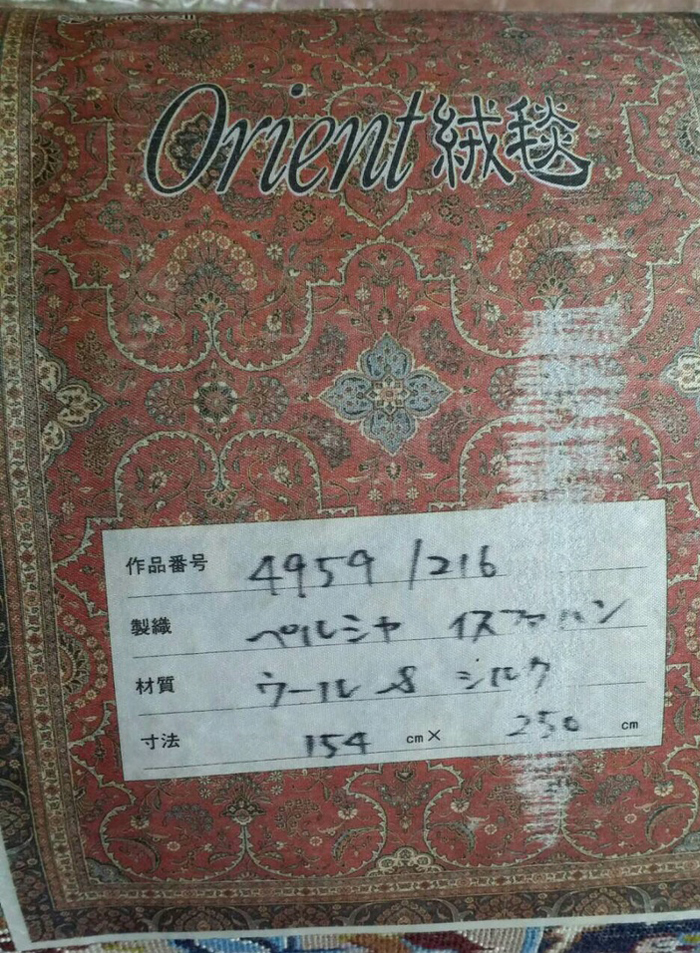 Orient 絨毯
作品番号 4959 /216
製織 ペルシャ イスファハン
材質 ウール & シルク
寸法 154 cm × 250 cm